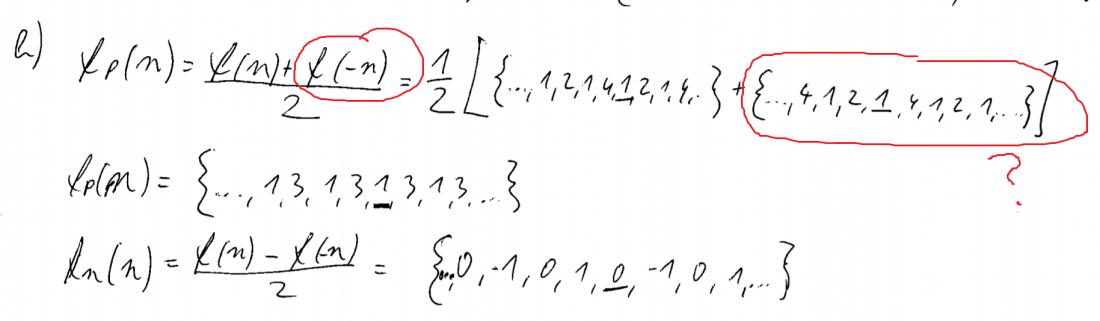 a) x_p(n) = (x(n) + x(-n))/2 = 1/2 [ {..., 1, 2, 1, 4, 1, 2, 1, 4, ..} + {..., 4, 1, 2, 1, 4, 1, 2, 1, ...} ]
?
x_p(n) = {..., 1, 3, 1, 3, 1, 3, 1, 3, ...}
x_n(n) = (x(n) - x(-n))/2 = {..., 0, -1, 0, 1, 0, -1, 0, 1, ...}